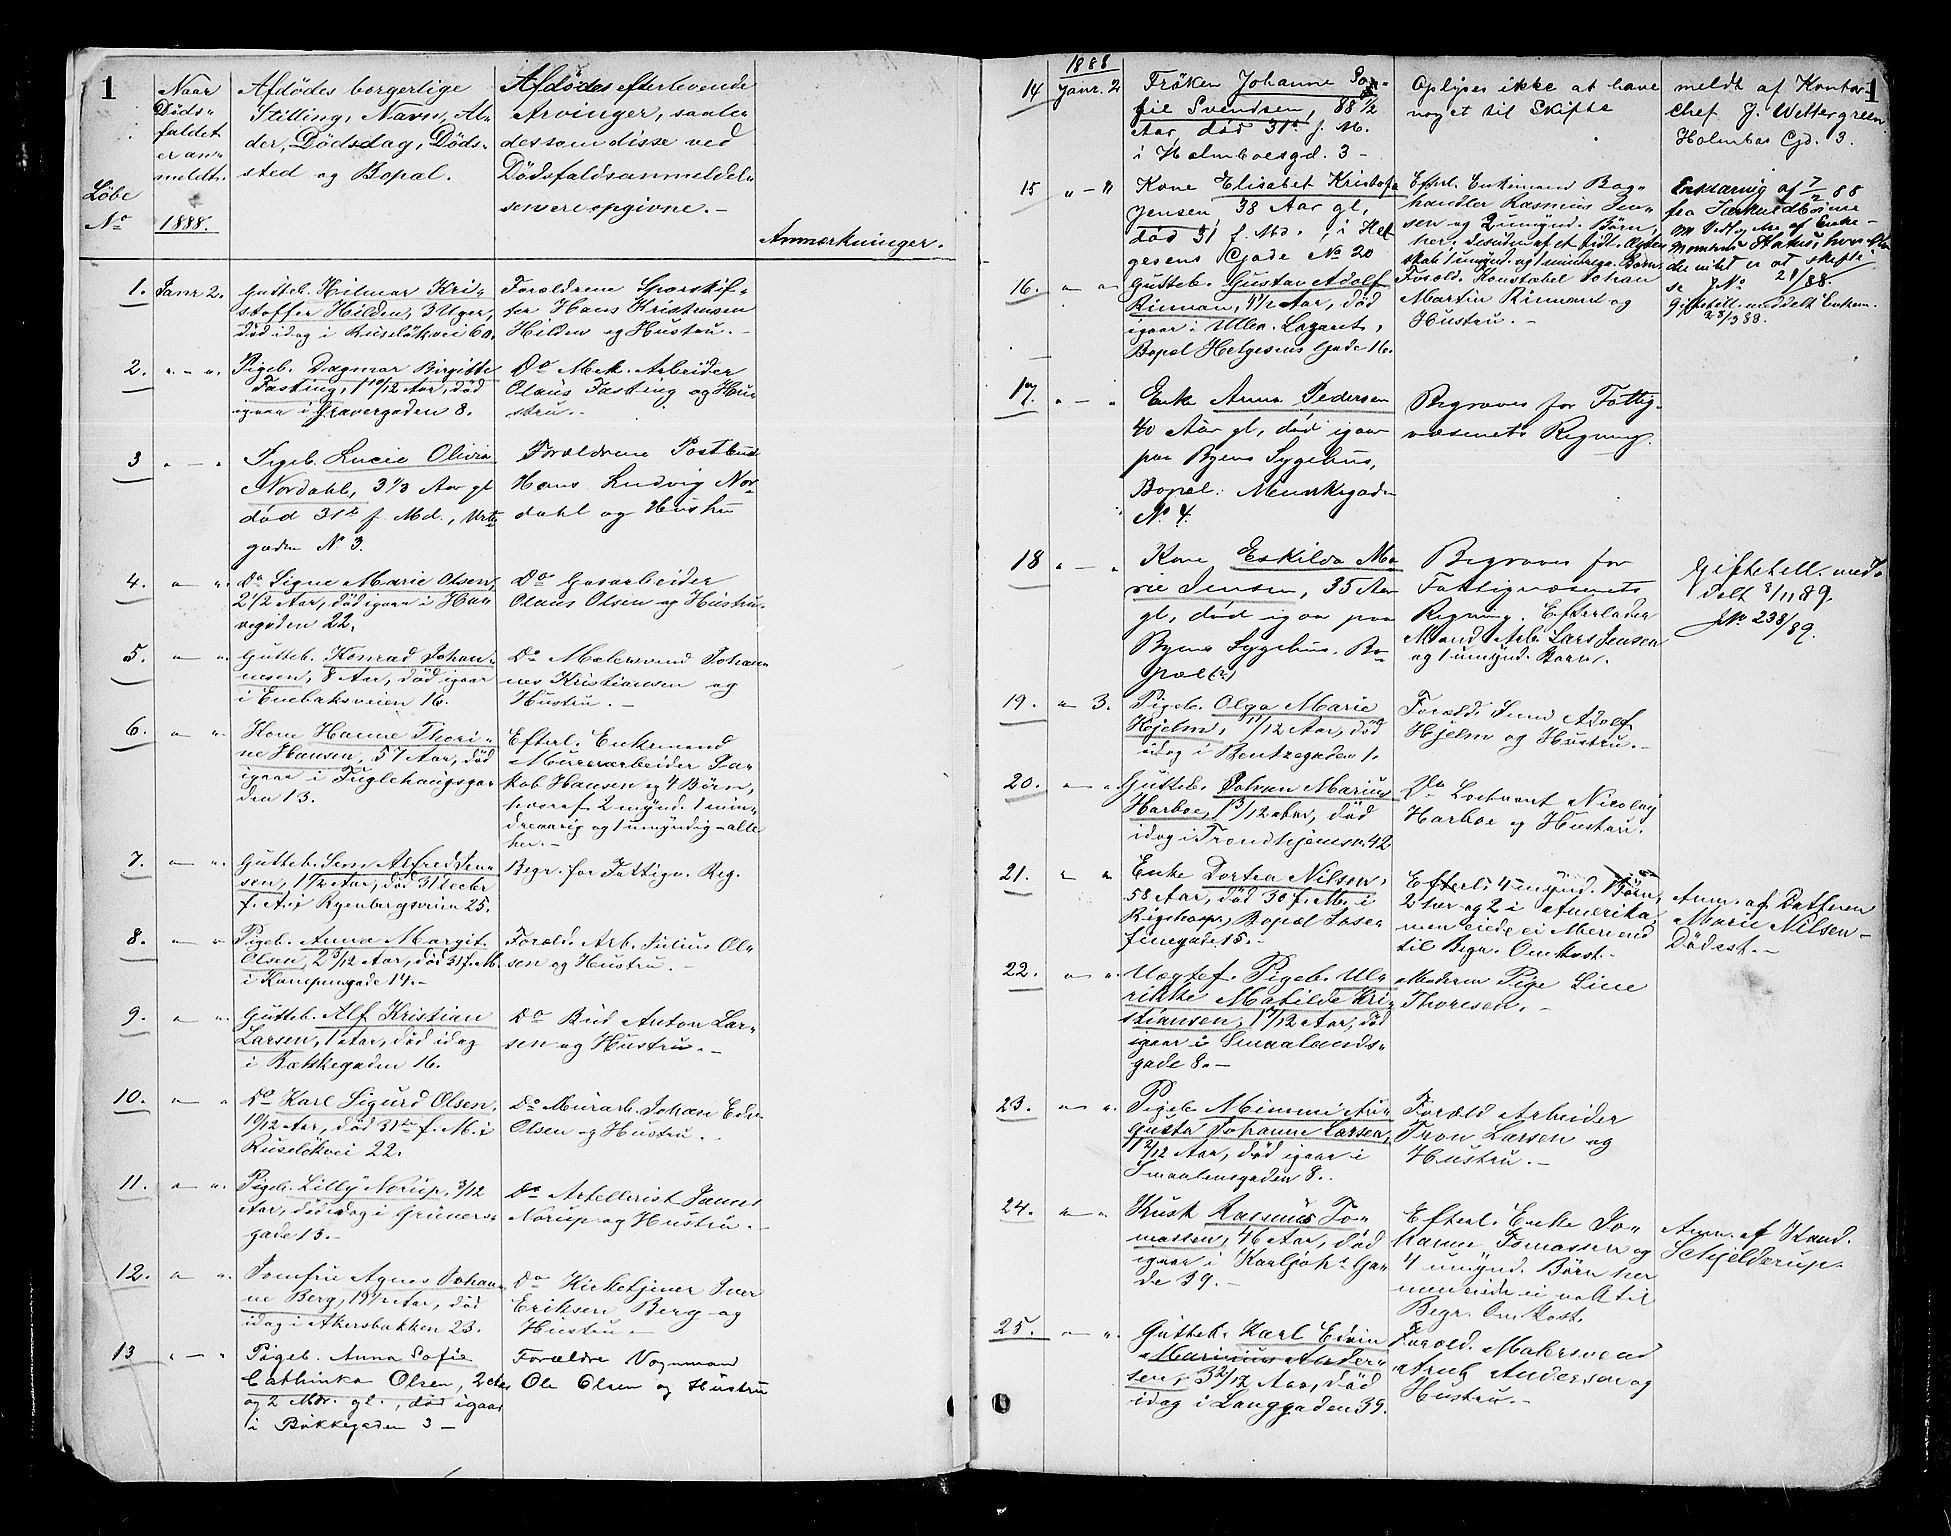 1
Naar
Døds-
faldet
er an-
meldt.
1888.
Løbe
No
Afdødes borgerlige
Stilling, Navn, Al-
der, Dødsdag, Døds-
sted og Bopæl.
Afdødes efterlevende
Arvinger, saale-
dessom disse ved
Dødsfaldsanmeldel-
sen ere opgivne. -
Anmærkninger.
1. Janr 2. Gutteb. Hilmar Kri-
stoffer Hilden, 3 Uger,
død idag i Ruseløkvei 60.
Forældrene Sporskif-
ter Hans Kristensen
Hilden og Hustru. -
2. " - " Pigeb. Dagmar Birgitte
Fasting, 1 10/12 Aar, død
igaar i Gravergaden 8.
Do Mek. Arbeider
Olaus Fasting og Hu-
stru. -
3 " - " Pigeb. Lucie Olivia
Nordahl, 3 1/3 Aar gl
død 31te f. Md., Urte-
gaden No 3.
Forældrene Postbud
Hans Ludvig Nor-
dahl og Hustru
4. " - " Do Signe Marie Olsen,
2 1/2 Aar, død igaar i Hav-
negaden 22.
Do Gasarbeider
Olaus Olsen og Hustru.
5. " - " Gutteb. Konrad Johan-
nesen, 8 Aar, død igaar
i Enebaksveien 16.
Do Malersvend Johan-
nes Kristiansen og
Hustru. -
6. " " Kone Hanne Thori-
ne Hansen, 57 Aar, død
igaar i Fuglehaugsga-
den 13.
Efterl. Enkemand
Murerarbeider Ja-
kob Hansen og 4 Børn,
hvoraf 2 mynd. 1 min-
dreaarig og 1 umyndig - alle
her. -
7. " - " Gutteb. Jens Alfred Jen-
sen, 1 1/2 Aar, død 31 Decbr
f. A. i Ryenbergsveien 25.
Begr. for Fattigv. Reg.
8. " - " Pigeb. Anna Margit
Olsen, 2 3/12 Aar, død 31 f. M.
i Kampengade 14. -
Foræld. Arb. Julius Ol-
sen og Hustru. -
9. " " Gutteb. Alf Kristian
Larsen, 1 Aar, død idag
i Bækkegaden 16.
Do Bud Anton Lar-
sen og Hustru. -
10. " " Do Karl Sigurd Olsen,
10/12 Aar, død 31te f. M. i
Ruseløkvei 22.
Do Murarb. Johan Edv.
Olsen og Hustru. -
11. " " Pigeb. Lilly Norup, 3/12
Aar, død idag i Grüners-
gade 13. -
Do Artellerist James
Norup og Hustru. -
12. " " Jomfru Agnes Johan-
ne Berg, 19 1/2 Aar, død
idag i Akersbakken 23.
Do Kirketjener Iver
Eriksen Berg og
Hustru. -
13 " - " Pigeb. Anna Sofie
Cathinka Olsen, 2 Aar
og 2 Mdr. gl., død igaar
i Bækkegaden 3 -
Forældre Vognmand
Ole Olsen og Hustru
1
1888
14 Janr. 2 Frøken Johanne So-
fie Svendsen, 88 1/2
Aar, død 31te f. M.
i Holmboesgd. 3 -
Oplyses ikke at have
noget til Skifte
meldt af Kontor-
chef J. Wettergreen
Holmbos Gd. 3.
15 " - " Kone Elisabet Kristofa
Jensen, 38 Aar gl,
død 31 f. Md., i Hel-
gesens Gade No 20
Efterl. Enkemand Bag-
handler Rasmus Jen-
sen og 2 umynd. Børn,
her, desuden af et tidl. Ægte-
skab 1 umynd. og 1 mindreaa. Barn.
Erklæring af 7/2 88
fra
at skifte
No 21/88.
Giftetill. meddelt Enkem.
28/3 88.
16. " " Gutteb. Gustav Adolf
Rimann, 1 1/2 Aar, død
igaar i Ullev. Lazaret,
Bopæl Helgesens Gade 16.
Foræld. Konstabel Johan
Martin Rimann og
Hustru. -
17. " - " Enke Anna Pedersen
40 Aar gl, død igaar
paa Byens Sygehus,
Bopæl: Munkegaden
No 4.
Begraves for Fattig-
væsenets Regning.
18 " - " Kone Eskilda Ma-
rie Jensen, 35 Aar
gl, død igaar paa
Byens Sygehus, Bo-
pæl (?)
Begraves for
Fattigvæsenets
Regning. Efterlader
Mand Arb. Lars Jensen
og 1 umynd. Barn.
Giftetill. med-
delt 8/11 89.
JNo 238/89.
19. " 3. Pigeb. Olga Marie
Hjelm, 11/12 Aar, død
idag i Bentzegaden 1.
Foræld. Smed Adolf
Hjelm og Hustru. -
20. " - " Gutteb. Johan Marius
Harboe, 1 3/12 Aar, død
idag i Trondhjemsv. 42
Do Nicolay
Harboe og Hustru.
21. " " Enke Dortea Nilsen,
58 Aar, død 30 f. M. i
Rigshosp., Bopæl Jose-
finegade 15. -
Efterl. 4 mynd. Børn,
2 her og 2 i Amerika,
men eiede ei Mere end
til Begr. Omkost. -
Anm. af Datteren
Marie Nilsen -
Dødsat. -
22. " " Uægtef. Pigeb. Ul-
rikke Matilde Kri-
stiansen, 1 7/12 Aar, død
igaar i Smaalands-
gade 8. -
Moderen Pige Line
Thoresen. -
23. " " Pigeb. Mimmi Au-
gusta Johanne Larsen,
1 2/12 Aar, død igaar i
Smaalensgaden 8.
Foræld Arbeider
Tron Larsen og
Hustru. -
24. " " Kusk Rasmus To-
massen, 46 Aar, død
igaar i Karljohs Ga-
de 39. -
Efterl. Enke Jo-
hanne Tomassen og
4 umynd. Børn her
men eiede ei nok til
Begr. Omkost.
Anm. af Kand.
Schjelderup.
25. " - " Gutteb. Karl Edvin
Marinius Ander-
sen, 3 2/12 Aar, død
idag i Langgaden 39.
Foræld. Malersvend
Arnt Andersen og
Hustru. -